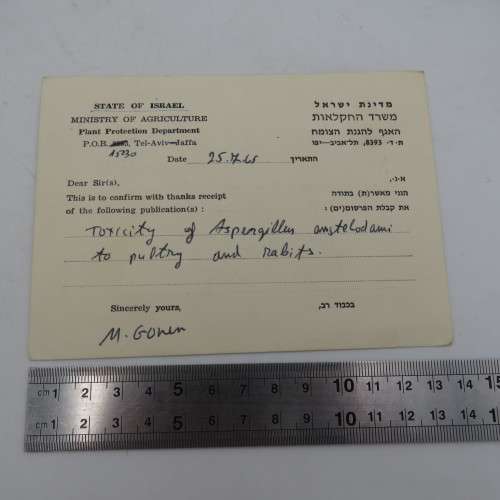 STATE OF ISRAEL
MINISTRY OF AGRICULTURE
Plant Protection Department
P.O.B. Tel-Aviv—Jaffa
15030
Date 25.7.65
Dear Sir(s),
This is to confirm with thanks receipt
of the following publication(s) :
מדינת ישראל
משרד החקלאות
האגף להגנת הצומח
ת·ד· 8393, תל־אביב—יפו
התאריך
א·נ·,
הנני מאשר(ת) בתודה
את קבלת הפרסום(ים) :
Toxicity of Aspergillus amstelodami
to pultry and rabits.
Sincerely yours,
בכבוד רב,
M. Gonen
cm 1 2 3 4 5 6 7 8 9 10 11 12 13 14 15
cm 1 2 3 4 5 6 7 8 9 10 11 12 13 14